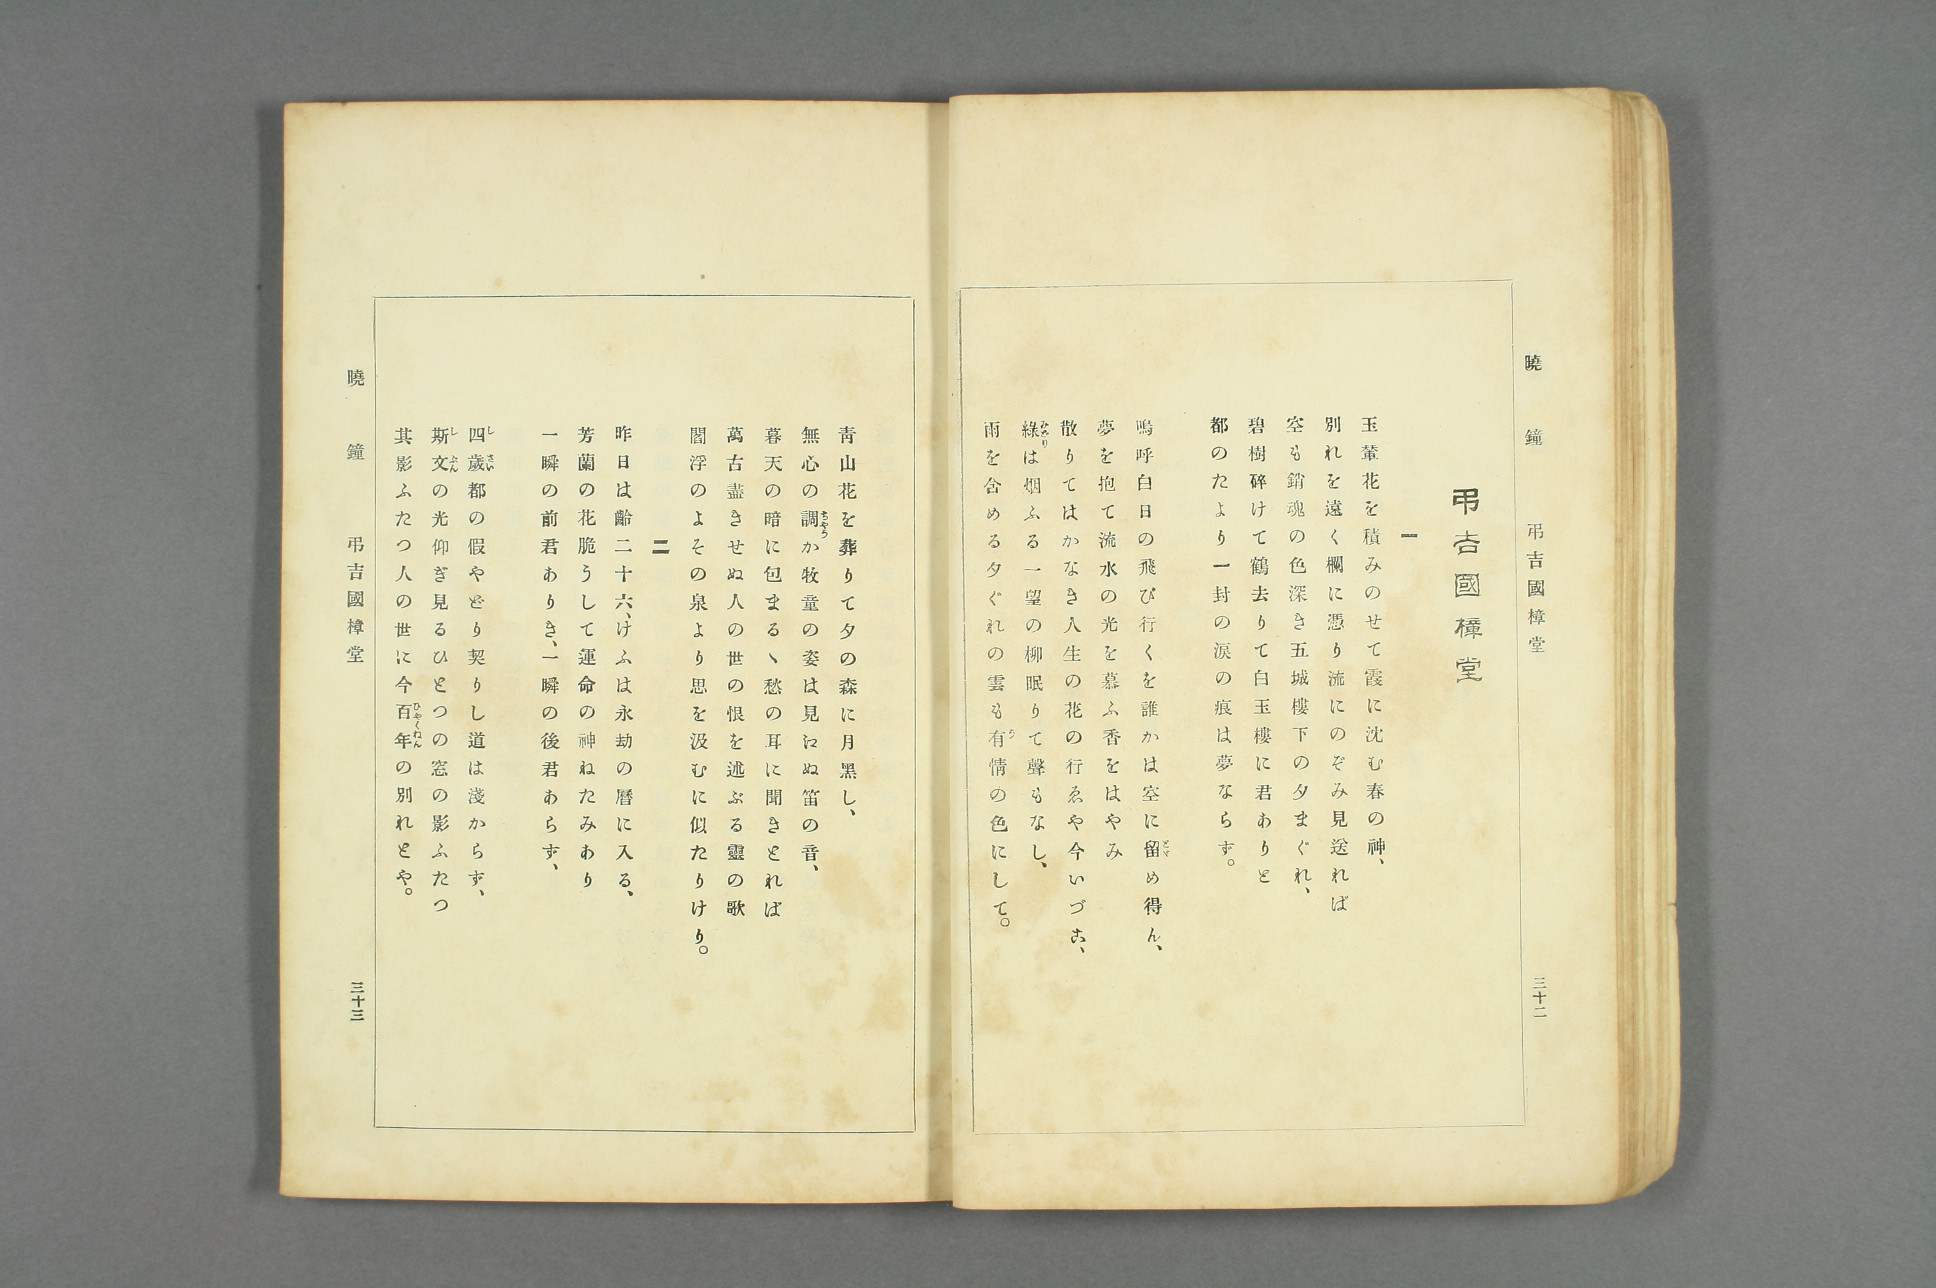 曉鐘　弔吉國樟堂　三十二
弔吉國樟堂
一
玉輦花を積みのせて霞に沈む春の神、
別れを遠く欄に憑り流にのぞみ見送れば
空も銷魂の色深き五城樓下の夕まぐれ、
碧樹碎けて鶴去りて白玉樓に君ありと
都のたより一封の涙の痕は夢ならず。
嗚呼白日の飛び行くを誰かは空に留め得ん、
夢を抱て流水の光を慕ふ香をはやみ
散りてはかなき人生の花の行ゑや今いづこ、
綠は烟ふる一望の柳眠りて聲もなし、
雨を含める夕ぐれの雲も有情の色にして。
青山花を葬りて夕の森に月黑し、
無心の調か牧童の姿は見えぬ笛の音、
暮天の暗に包まるヽ愁の耳に聞きとれば
萬古盡きせぬ人の世の恨を述ぶる靈の歌
閻浮のよその泉より思を汲むに似たりけり。
二
昨日は齡二十六、けふは永劫の曆に入る、
芳蘭の花脆うして運命の神ねたみあり
一瞬の前君ありき、一瞬の後君あらず、
四歲都の假やどり契りし道は淺からず、
斯文の光仰ぎ見るひとつの窓の影ふたつ
其影ふたつ人の世に今百年の別れとや。
曉鐘　弔吉國樟堂　三十三